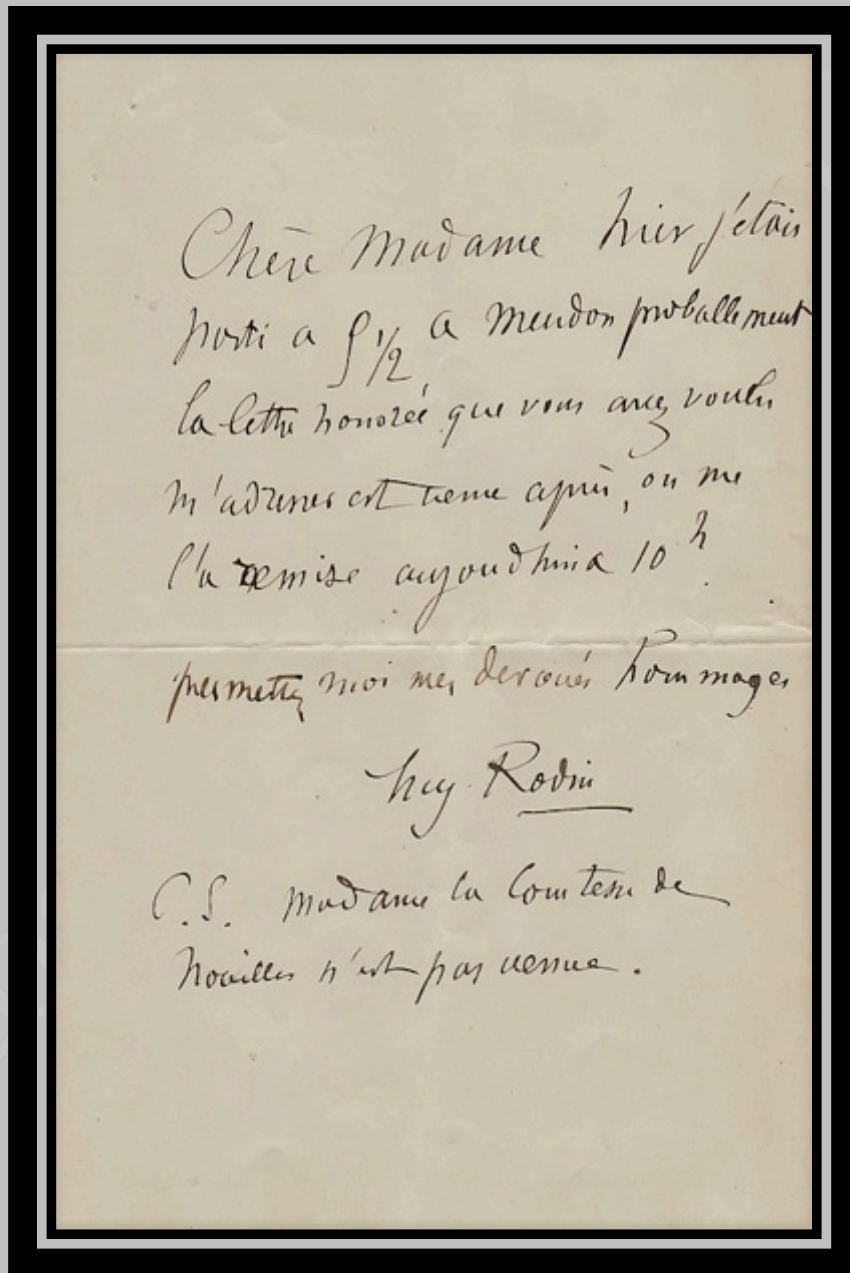 Chère Madame hier j'étais
parti a 5 1/2 a Meudon proballement
la lettre honorée que vous avez voulu
m'adresser est venue après, on me
l'a remise aujoudhui a 10 h
permettez moi mes devoués hommages
Aug. Rodin
P.S. Madame la Comtesse de
Noailles n'est pas venue.